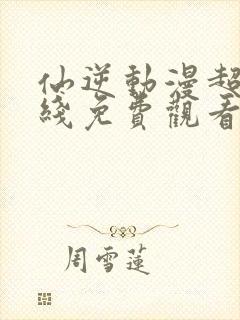 仙逆動漫超
綫免費觀看
周雪蓮